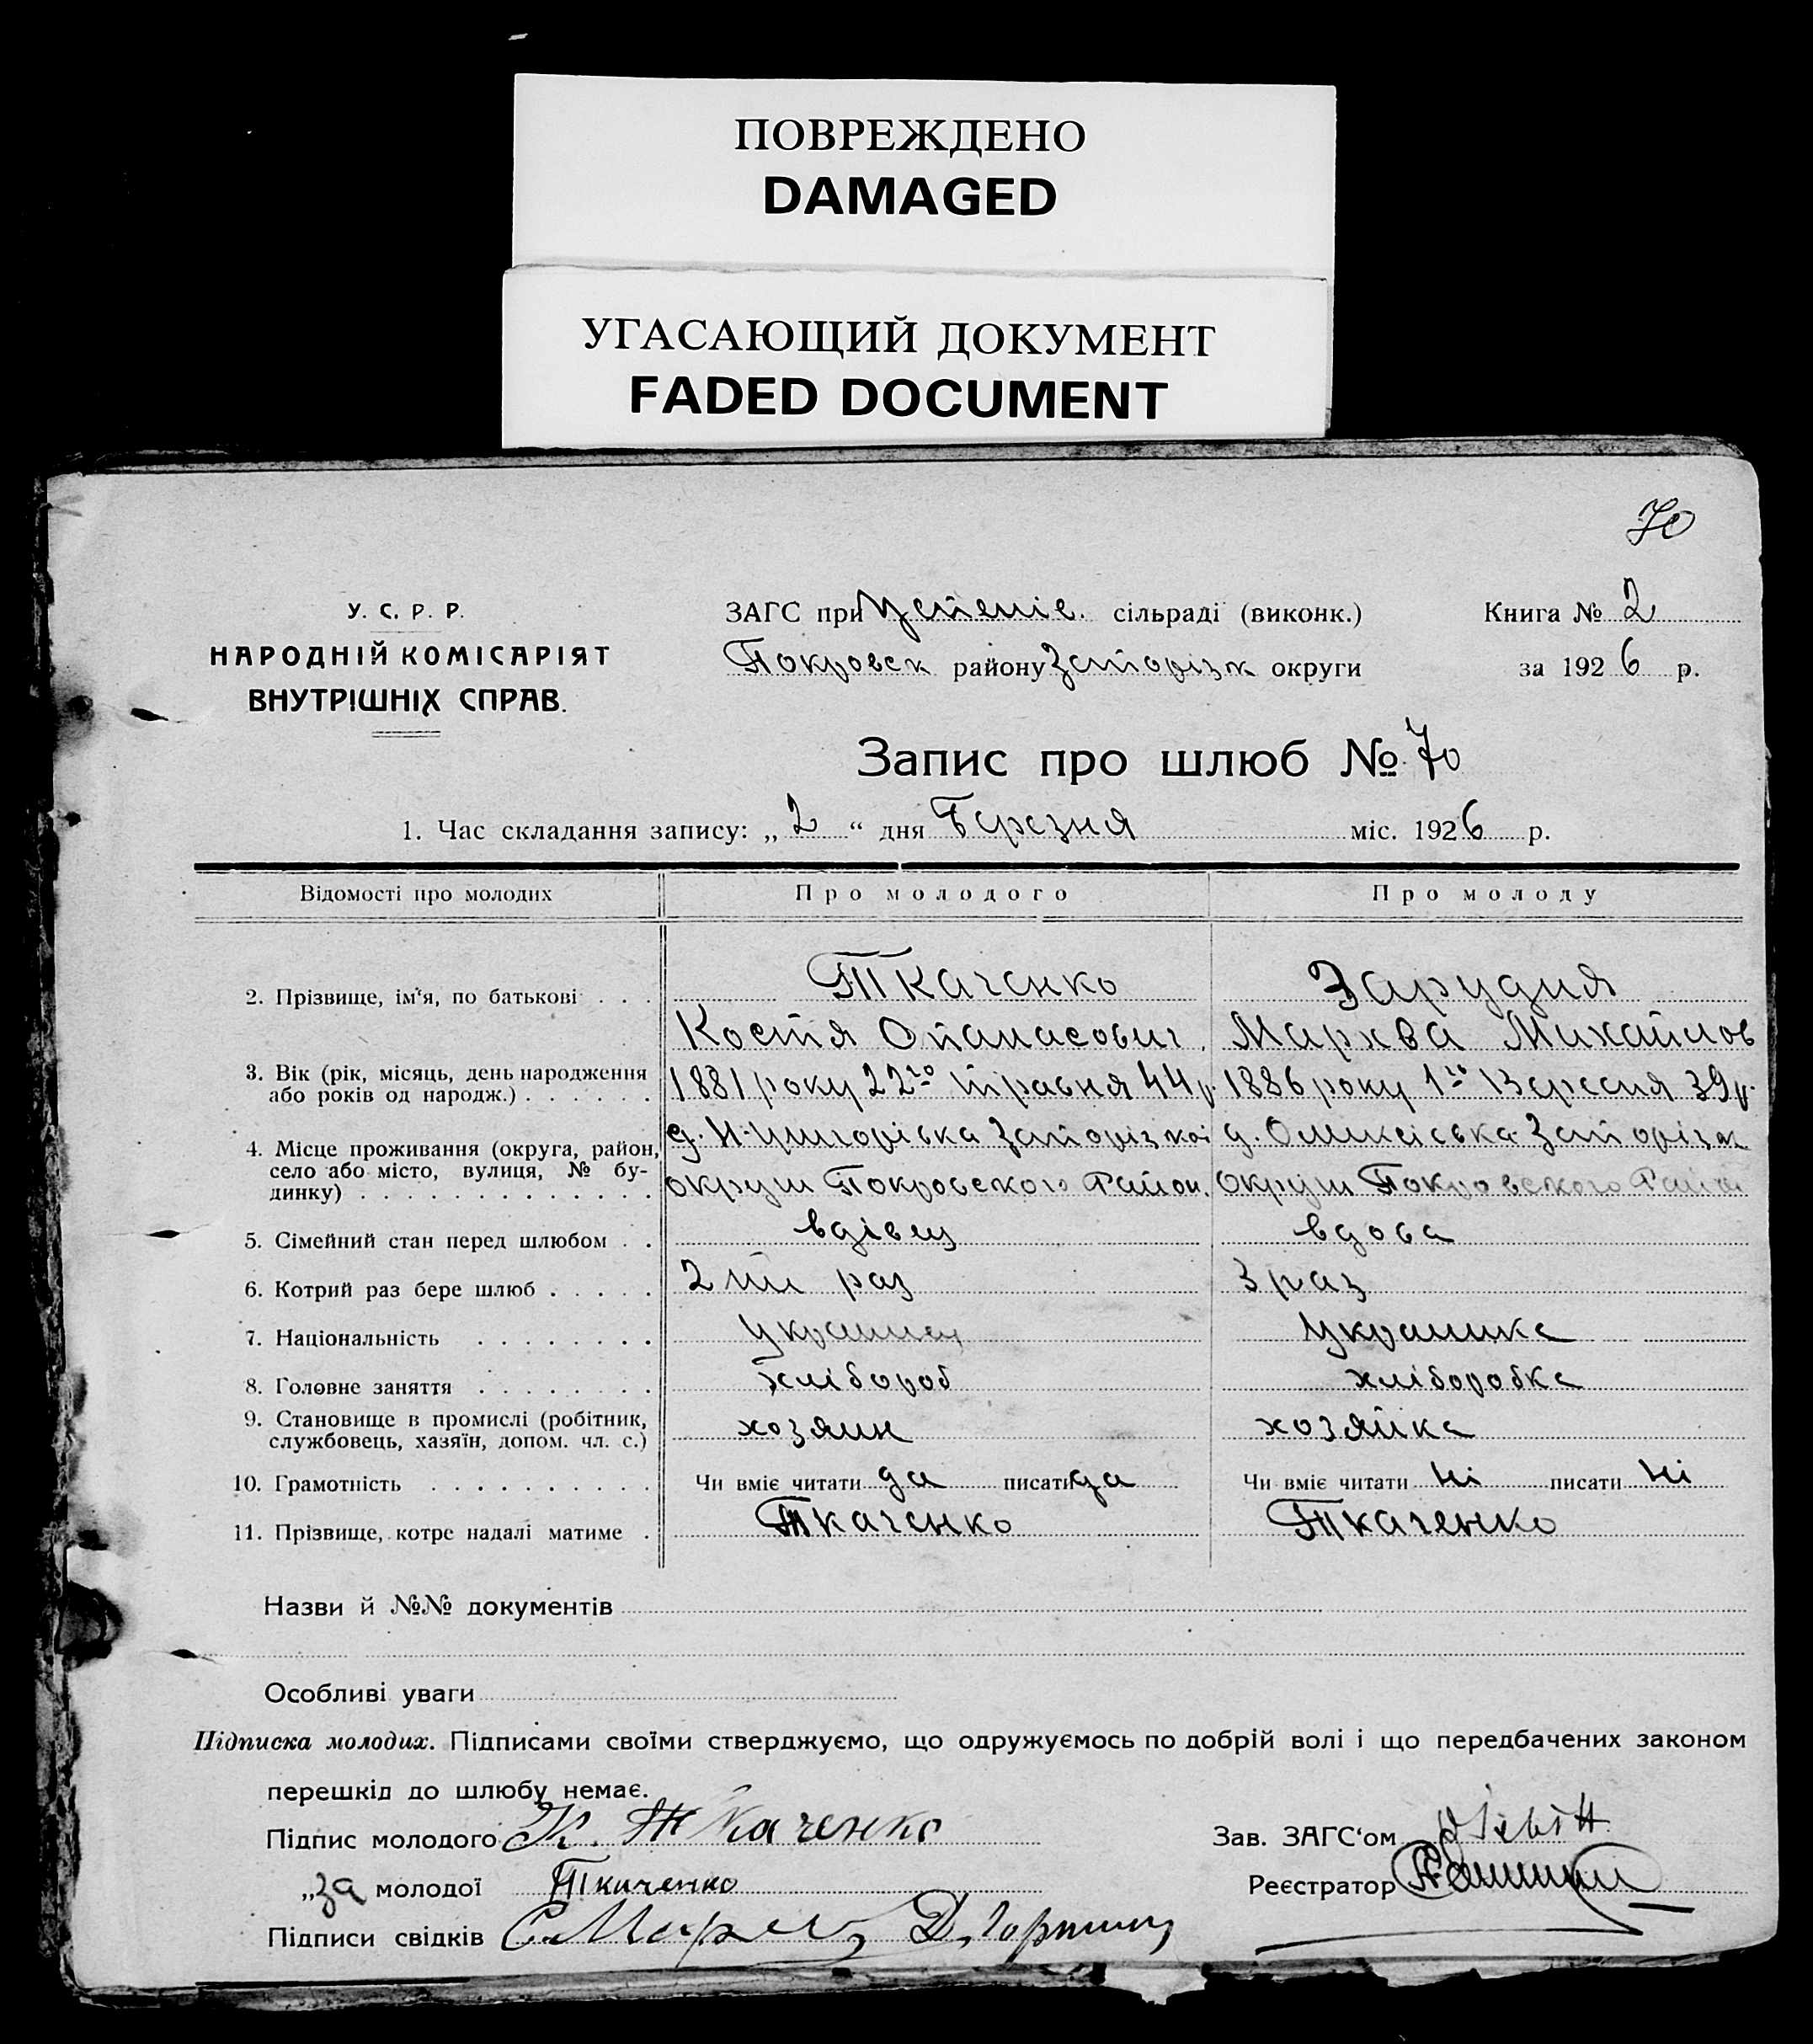 ПОВРЕЖДЕНО
DAMAGED
УГАСАЮЩИЙ ДОКУМЕНТ
FADED DOCUMENT
70
У. С. Р. Р.
НАРОДНІЙ КОМІСАРІЯТ
ВНУТРІШНІХ СПРАВ.
ЗАГС при Успеніє. сільраді (виконк.)
Покровск району Запорізк округи
Книга № 2
за 1926 р.
Запис про шлюб № 70
1. Час складання запису: „2“ дня Березня міс. 1926 р.
Відомості про молодих Про молодого Про молоду
2. Прізвище, ім'я, по батькові . . . Ткаченко Зарудня
Костя Опанасович, Мархва Михайлов
3. Вік (рік, місяць, день народження або років од народж.) . . . . . . 1881 року 22го травня 44р. 1886 року 1го Вересня 39р.
4. Місце проживання (округа, район, село або місто, вулиця, № будинку) . . . . . . . . . . . . .
Запорізкої д. Запорізк
округи Покровського Район. округи Покровського Район
5. Сімейний стан перед шлюбом . . вдівец вдова
6. Котрий раз бере шлюб . . . . . 2ий раз 3 раз
7. Національність . . . . . . . . Украинец Украинка
8. Головне заняття . . . . . . . . хлібороб хліборобка
9. Становище в промислі (робітник, службовець, хазяїн, допом. чл. с.) хозяин хозяйка
10. Грамотність . . . . . . . . . . Чи вміє читати да писати да Чи вміє читати ні писати ні
11. Прізвище, котре надалі матиме . Ткаченко Ткаченко
Назви й №№ документів
Особливі уваги
Підписка молодих. Підписами своїми стверджуємо, що одружуємось по добрій волі і що передбачених законом
перешкід до шлюбу немає.
Підпис молодого К. Ткаченко
Зав. ЗАГС'ом
„за молодої Ткаченко
Реєстратор
Підписи свідків